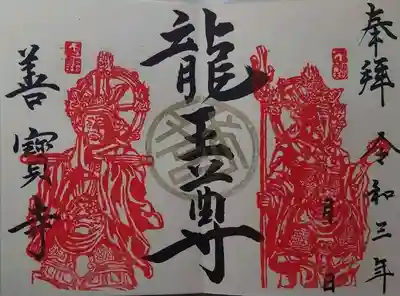 奉拝
令和三年
月日
龍王尊
善寳寺